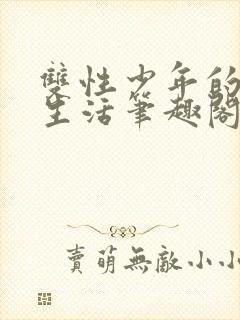 雙性少年的
生活筆趣閣
賣萌無敵小小